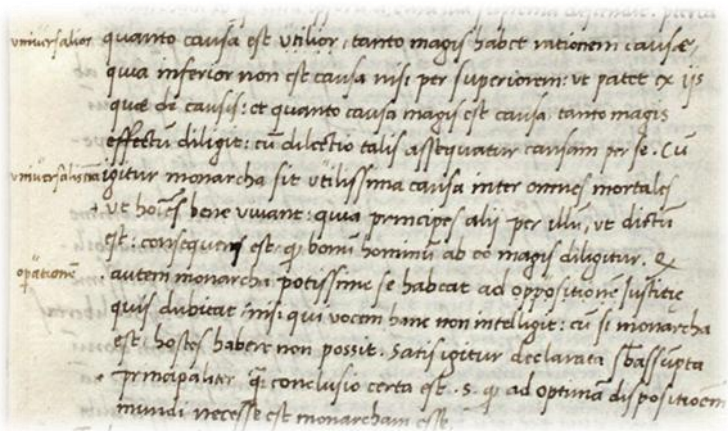 universalior quanto causa est utilior, tanto magis habet rationem causæ,
quia inferior non est causa nisi per superiorem: ut patet ex ijs
quæ de causis: et quanto causa magis est causa tanto magis
effectū diligit: cū dilectio talis assequatur causam per se. Cū
universalissima igitur monarcha sit utilissima causa inter omnes mortales
ut hoīes bene vivant: quia principes alij per illū, ut dictū
est: consequens est, q̄ bonū hominū ab eo magis diligitur. Q
opationē autem monarcha potissime se habeat ad oppositionē Justitię
quis dubitat nisi qui vocem hanc non intelligit: cū si monarcha
est, hostes habere non possit. Satis igitur declarata sbassūpta
principaliter, q̄ conclusio certa est. s. q̄ ad optimā dispositionem
mundi necesse est monarcham esse.